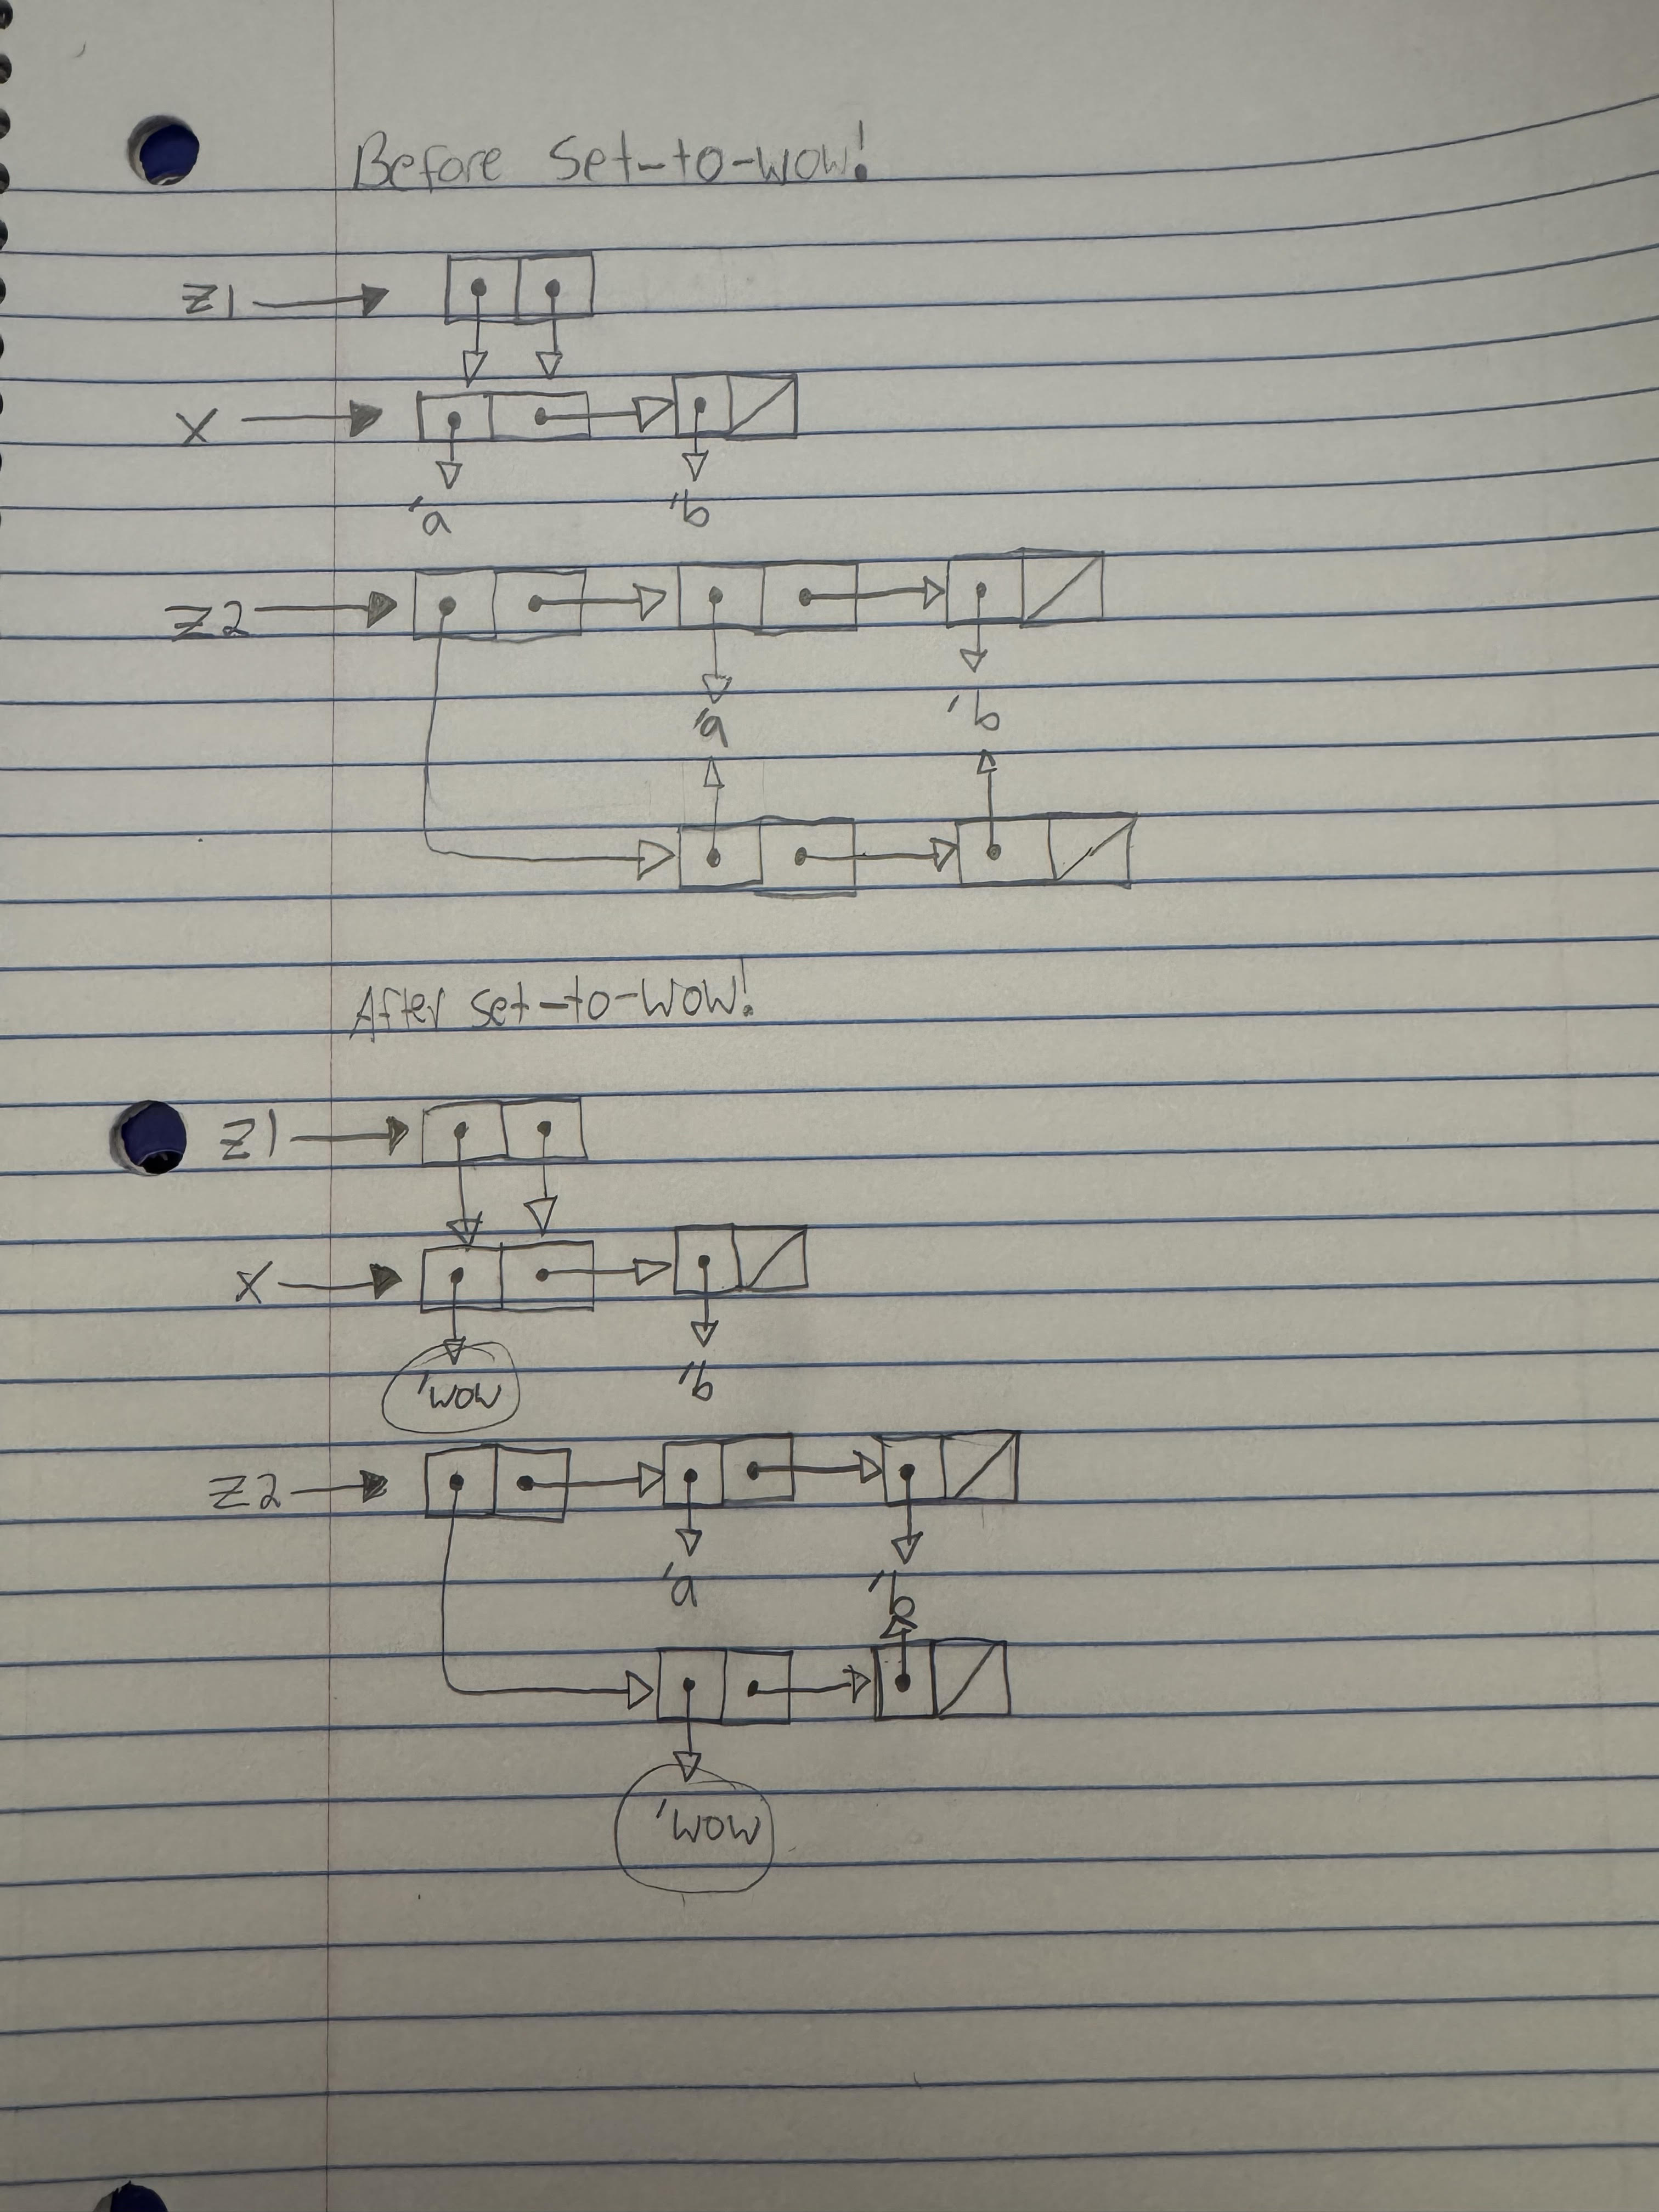 Before Set-to-wow!
z1
x
'a 'b
z2
'a 'b
After set-to-wow!
z1
x
'wow 'b
z2
'a 'b
'wow